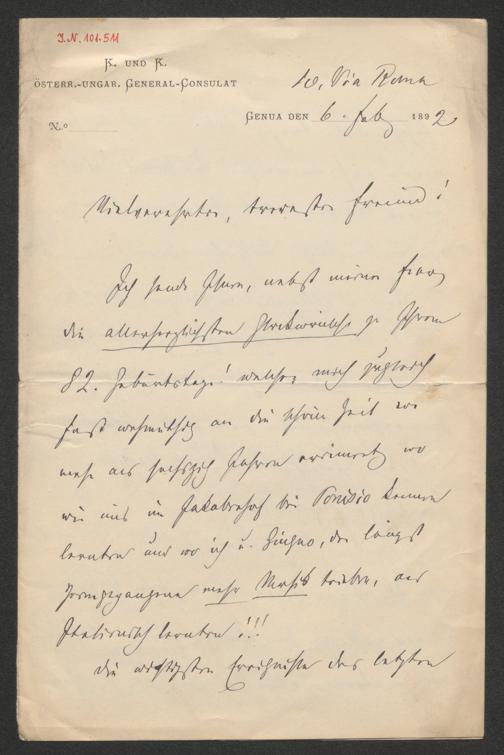 J.N. 101.511
K. UND K.
ÖSTERR.-UNGAR. GENERAL-CONSULAT
10, Via Roma
No
GENUA DEN 6. Feb 1892
Vielverehrter, treuester Freund!
Ich sende Ihnen, nebst meiner Frau,
die allerherzlichsten Glückwünsche zu Ihrem
82. Geburtstage! welcher mich zugleich
fast wehmüthig an die schöne Zeit vor
mehr als sechszig Jahren erinnert, wo
wir uns im Jakoberhof bei Ponisio kennen
lernten und wo ich u. Giugno, der längst
Heimgegangene mehr Musik trieben, als
Italienisch lernten!!!
Die wichtigsten Ereignisse des letzten